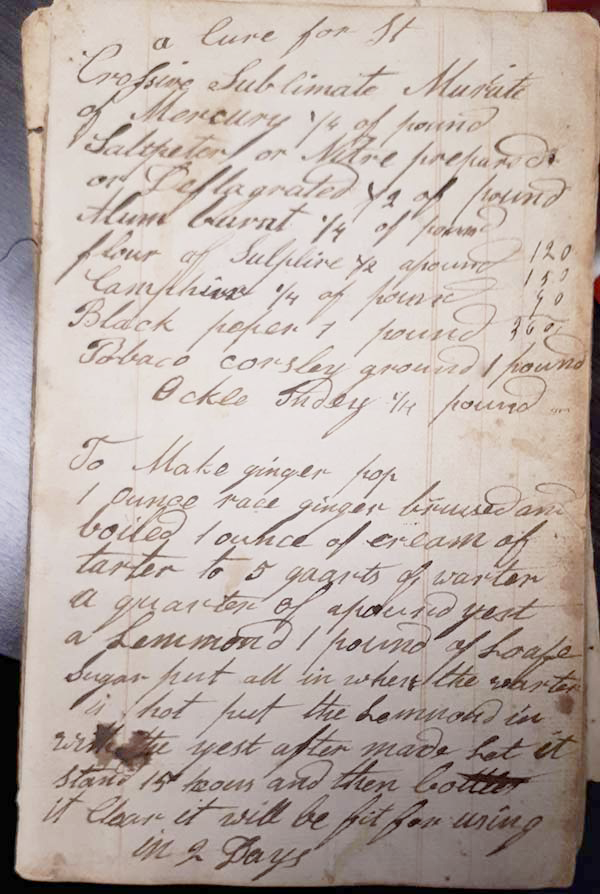 a Cure for St
Crossive Sublimate Muriate
of Mercury 1/4 of pound
Saltpeter or Nitre prepared
or Deflagrated 1/2 of pound
Alum burnt 1/4 of pound
flour of Sulphre 1/2 apound 120
Camphire 1/4 of pound 150
90
Black peper 1 pound 360
Tobaco corsley ground 1 pound
Ockle Indey 1/4 pound
To Make ginger pop
1 ounce race ginger bruised and
boiled 1 ounce of cream of
tarter to 5 qaarts of warter
a quarter of apound yest
a Lemmond 1 pound of Loafe
Sugar put all in when the warter
is hot put the Lemmond in
with the yest after made Let it
Stand 15 hous and then
it Clear it will be fit for using
in 2 Days